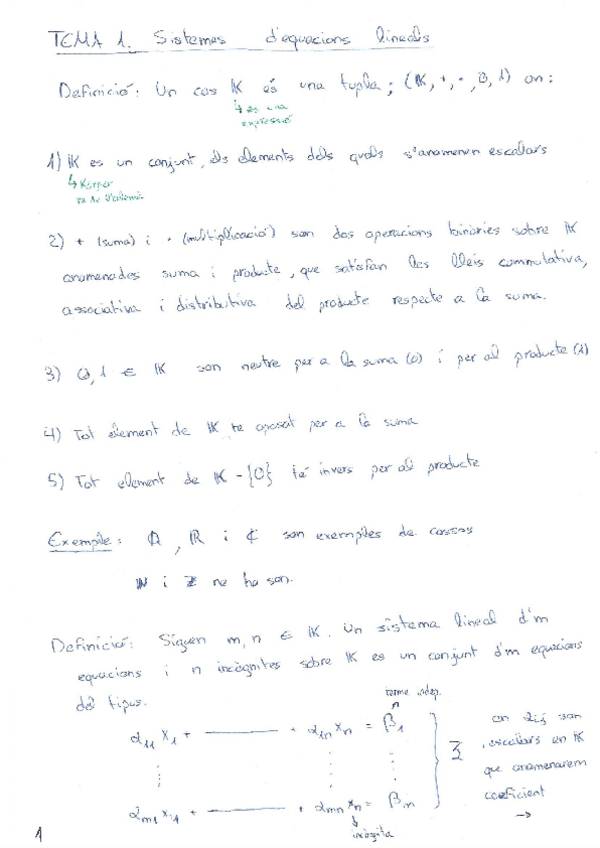 TEMA 1. Sistemes d'equacions lineals
Definició: Un cos 𝕂 és una tupla; (𝕂, +, ·, 0, 1) on:
↳ és una
expressió
1) 𝕂 es un conjunt, els elements dels quals s'anomenen escalars
↳ Körper
2) + (suma) i · (multiplicació) son dos operacions binàries sobre 𝕂
anomenades suma i producte, que satisfan les lleis commutativa,
associativa i distributiva del producte respecte a la suma.
3) 0,1 ∈ 𝕂 son neutre per a la suma (0) i per al producte (1)
4) Tot element de 𝕂 te oposat per a la suma
5) Tot element de 𝕂 -{0} té invers per al producte
Exemple: ℚ, ℝ i ℂ son exemples de cossos
ℕ i ℤ no ho son.
Definició: Siguen m, n ∈ 𝕂. Un sistema lineal d'm
equacions i n incògnites sobre 𝕂 es un conjunt d'm equacions
del tipus.
terme indep.
α₁₁ x₁ + ——— + α₁ₙ xₙ = β₁
αₘ₁ x₁ + ——— + αₘₙ xₙ = βₘ
↳ incògnita
on αij son
escalars en 𝕂
que anomenarem
coeficient
→
1